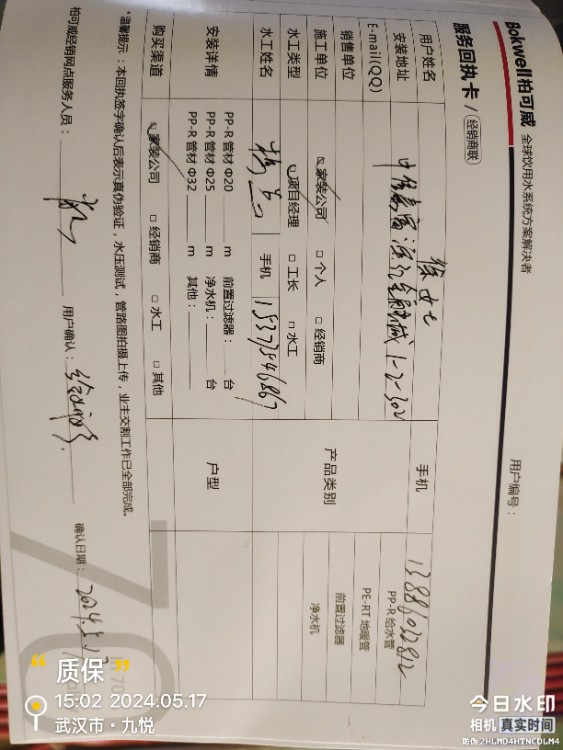 Bokwell柏可威 全球饮用水系统方案解决者
服务回执卡 / 经销商联
用户编号：
用户姓名 徐女士 手机 13886022812
安装地址 1-2-302
E-mail(QQ)
销售单位
施工单位 ☑家装公司 □个人 □经销商
水工类型 ☑项目经理 □工长 □水工
水工姓名 手机 15337546867
产品类别
PP-R 给水管
PE-RT 地暖管
前置过滤器
净水机
安装详情
PP-R 管材 Φ20 m 前置过滤器： 台
PP-R 管材 Φ25 m 净水机： 台
PP-R 管材 Φ32 m 其他：
户型
购买渠道 ☑家装公司 □经销商 □水工 □其他
*温馨提示：本回执签字确认后表示真伪验证，水压测试，管路图拍摄上传，业主交割工作已全部完成。
柏可威经销网点服务人员： 用户确认： 确认日期： 2024.5.17
70
质保
15:02 2024.05.17
武汉市·九悦
今日水印
相机 真实时间
防伪 2HLMD4HTNCDLM4